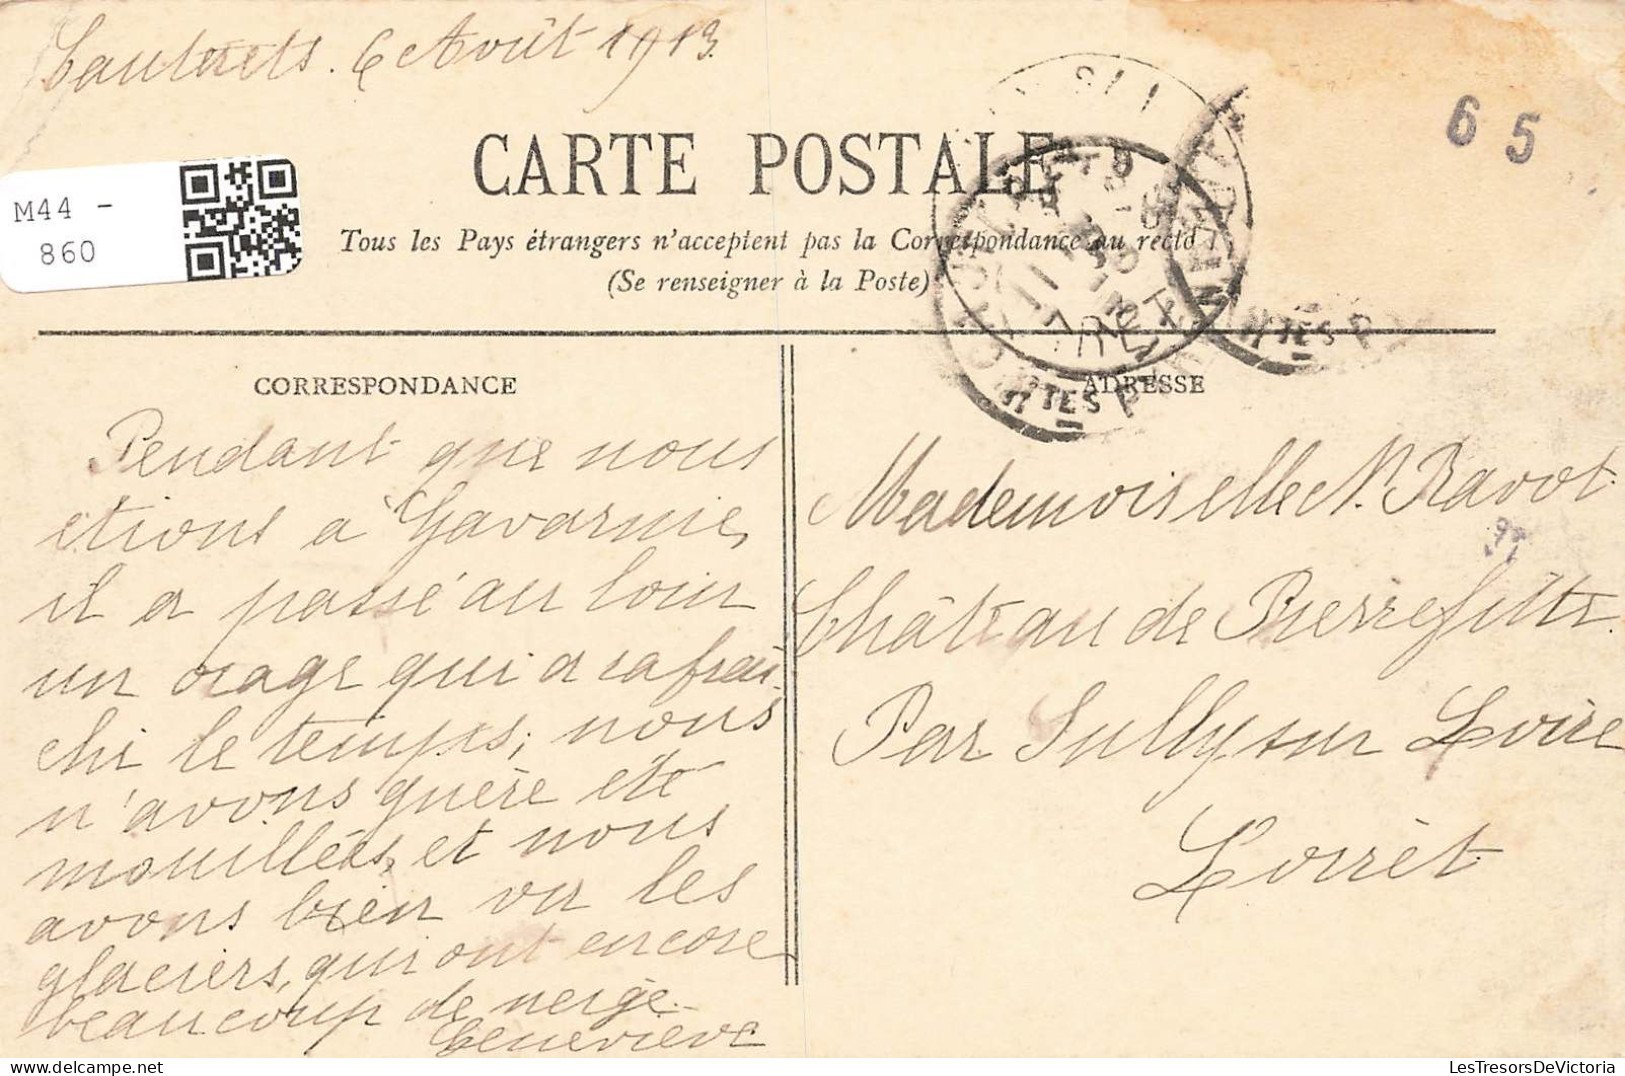 Cauterets. 6 Août 1913.
65
CARTE POSTALE
M44 -
860
Tous les Pays étrangers n'acceptent pas la Correspondance au recto
(Se renseigner à la Poste)
CAUTERETS
HTES P
HTES P
CORRESPONDANCE
Pendant que nous
etions à Gavarnie,
il a passé au loin
un orage qui a rafraî
chi le temps; nous
n'avons guère été
mouillées, et nous
avons bien vu les
glaciers, qui ont encore
beaucoup de neige.
Geneviève
ADRESSE
Mademoiselle N. Ravot
Château de Pierrefitte
Par Sully sur Loire
Loiret
LesTresorsDeVictoria - delcampe.net